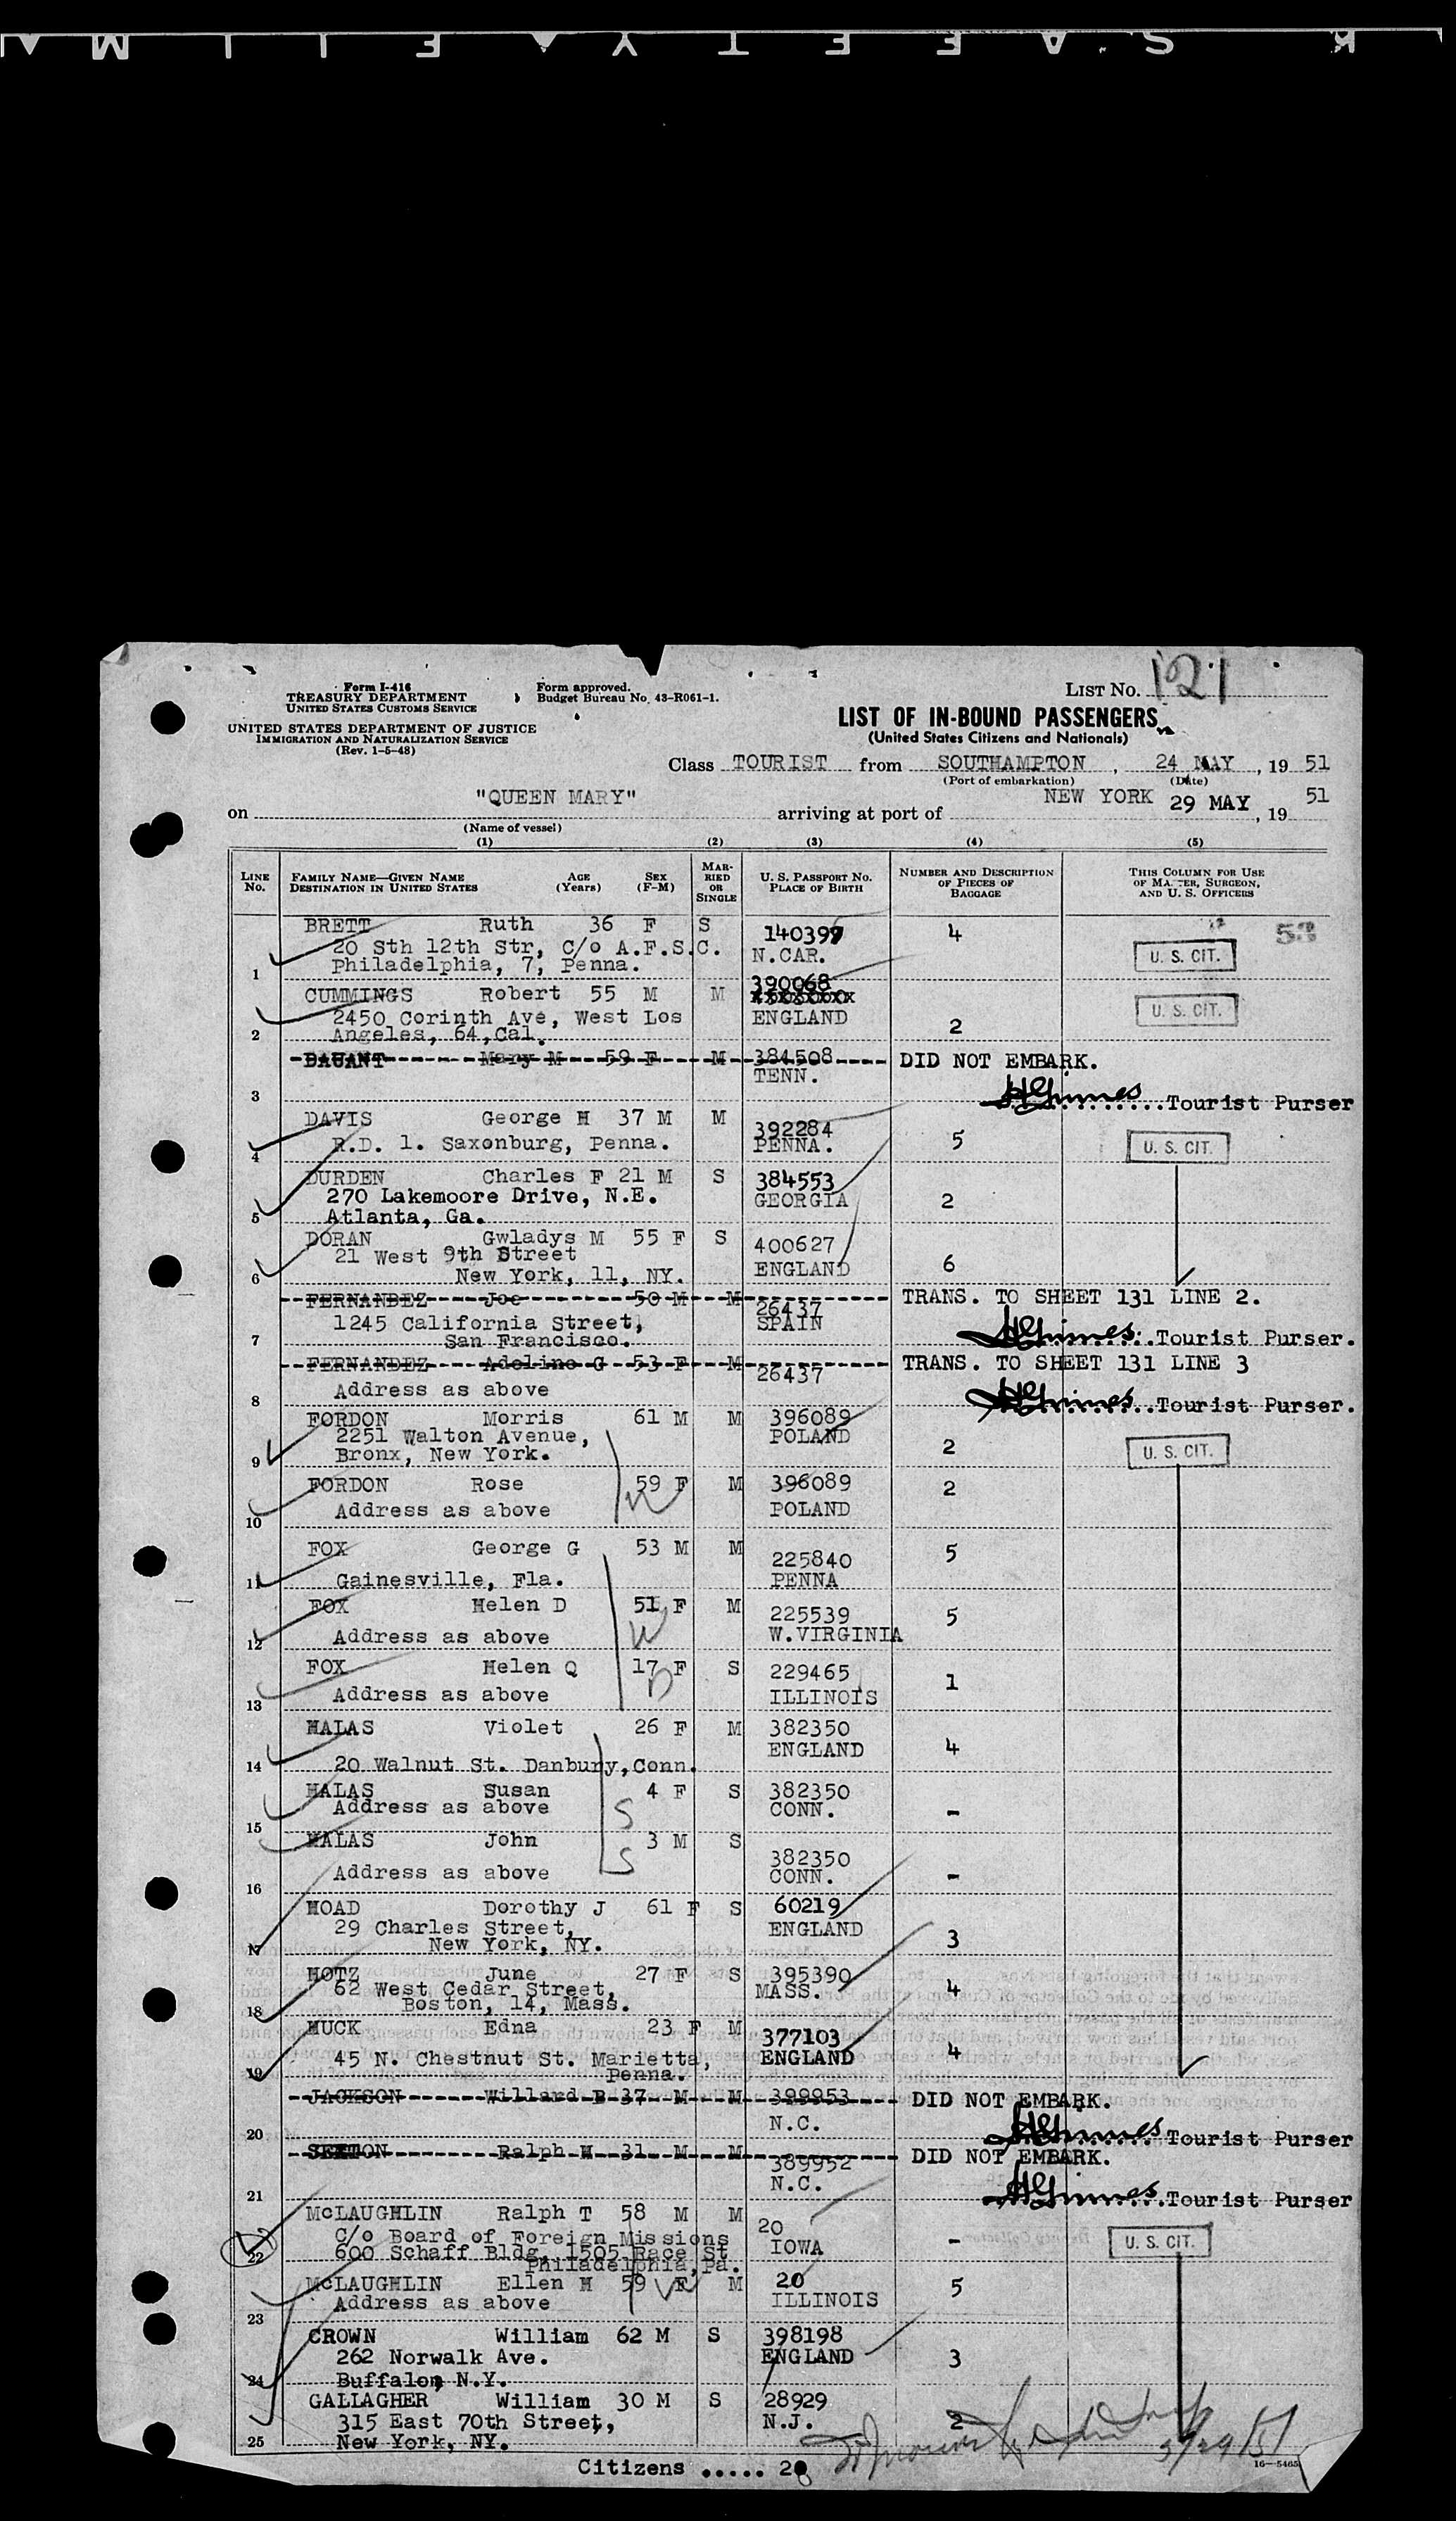 K S A F E T Y A F I L M
Form I-416
TREASURY DEPARTMENT
UNITED STATES CUSTOMS SERVICE
UNITED STATES DEPARTMENT OF JUSTICE
IMMIGRATION AND NATURALIZATION SERVICE
(Rev. 1-5-48)
Form approved.
Budget Bureau No. 43-R061-1.
LIST No. 121
LIST OF IN-BOUND PASSENGERS
(United States Citizens and Nationals)
Class TOURIST from SOUTHAMPTON, 24 MAY, 19 51
(Port of embarkation) (Date)
on "QUEEN MARY" arriving at port of NEW YORK 29 MAY, 19 51
(Name of vessel)
(1) (2) (3) (4) (5)
LINE No. FAMILY NAME—GIVEN NAME DESTINATION IN UNITED STATES AGE (Years) SEX (F-M) MARRIED OR SINGLE U. S. PASSPORT No. PLACE OF BIRTH NUMBER AND DESCRIPTION OF PIECES OF BAGGAGE THIS COLUMN FOR USE OF MASTER, SURGEON, AND U. S. OFFICERS
BRETT Ruth 36 F S 140397 4 53
20 Sth 12th Str, C/o A.F.S.C. N.CAR. U. S. CIT.
1 Philadelphia, 7, Penna.
CUMMINGS Robert 55 M M 390068 U. S. CIT.
2450 Corinth Ave, West Los ENGLAND 2
2 Angeles, 64, Cal.
DAUANT Mary M 59 F M 384508 DID NOT EMBARK.
TENN.
3 HGrimes Tourist Purser
DAVIS George H 37 M M 392284
4 R.D. 1. Saxonburg, Penna. PENNA. 5 U. S. CIT.
DURDEN Charles F 21 M S 384553
270 Lakemoore Drive, N.E. GEORGIA 2
5 Atlanta, Ga.
DORAN Gwladys M 55 F S 400627
21 West 9th Street ENGLAND 6
6 New York, 11, NY.
FERNANDEZ Joe 50 M M 26437 TRANS. TO SHEET 131 LINE 2.
1245 California Street, SPAIN
7 San Francisco. HGrimes Tourist Purser.
FERNANDEZ Adeline G 53 F M 26437 TRANS. TO SHEET 131 LINE 3
8 Address as above HGrimes Tourist Purser.
FORDON Morris 61 M M 396089
2251 Walton Avenue, POLAND 2 U. S. CIT.
9 Bronx, New York.
FORDON Rose 59 F M 396089 2
W
10 Address as above POLAND
FOX George G 53 M M 225840 5
11 Gainesville, Fla. PENNA
FOX Helen D 51 F M 225539 5
12 Address as above W W.VIRGINIA
FOX Helen Q 17 F S 229465 1
13 Address as above D ILLINOIS
HALAS Violet 26 F M 382350
14 20 Walnut St. Danbury, Conn. ENGLAND 4
HALAS Susan 4 F S 382350
15 Address as above S CONN. -
HALAS John 3 M S 382350
16 Address as above S CONN. -
HOAD Dorothy J 61 F S 60219
29 Charles Street, ENGLAND 3
17 New York, NY.
HOTZ June 27 F S 395390
62 West Cedar Street, MASS. 4
18 Boston, 14, Mass.
HUCK Edna 23 F M 377103
45 N. Chestnut St. Marietta, ENGLAND 4
19 Penna.
JACKSON Willard B 37 M M 399953 DID NOT EMBARK.
20 N.C. HGrimes Tourist Purser
SEXTON Ralph H 31 M M 389952 DID NOT EMBARK.
21 N.C. HGrimes Tourist Purser
McLAUGHLIN Ralph T 58 M M 20
C/o Board of Foreign Missions IOWA - U. S. CIT.
22 600 Schaff Bldg, 1505 Race St
Philadelphia, Pa.
McLAUGHLIN Ellen H 59 F M 20 5
W
23 Address as above ILLINOIS
CROWN William 62 M S 398198
262 Norwalk Ave. ENGLAND 3
24 Buffalo, N.Y.
GALLAGHER William 30 M S 28929
315 East 70th Street, N.J. 2
25 New York, NY.
Citizens ..... 20
16—5465